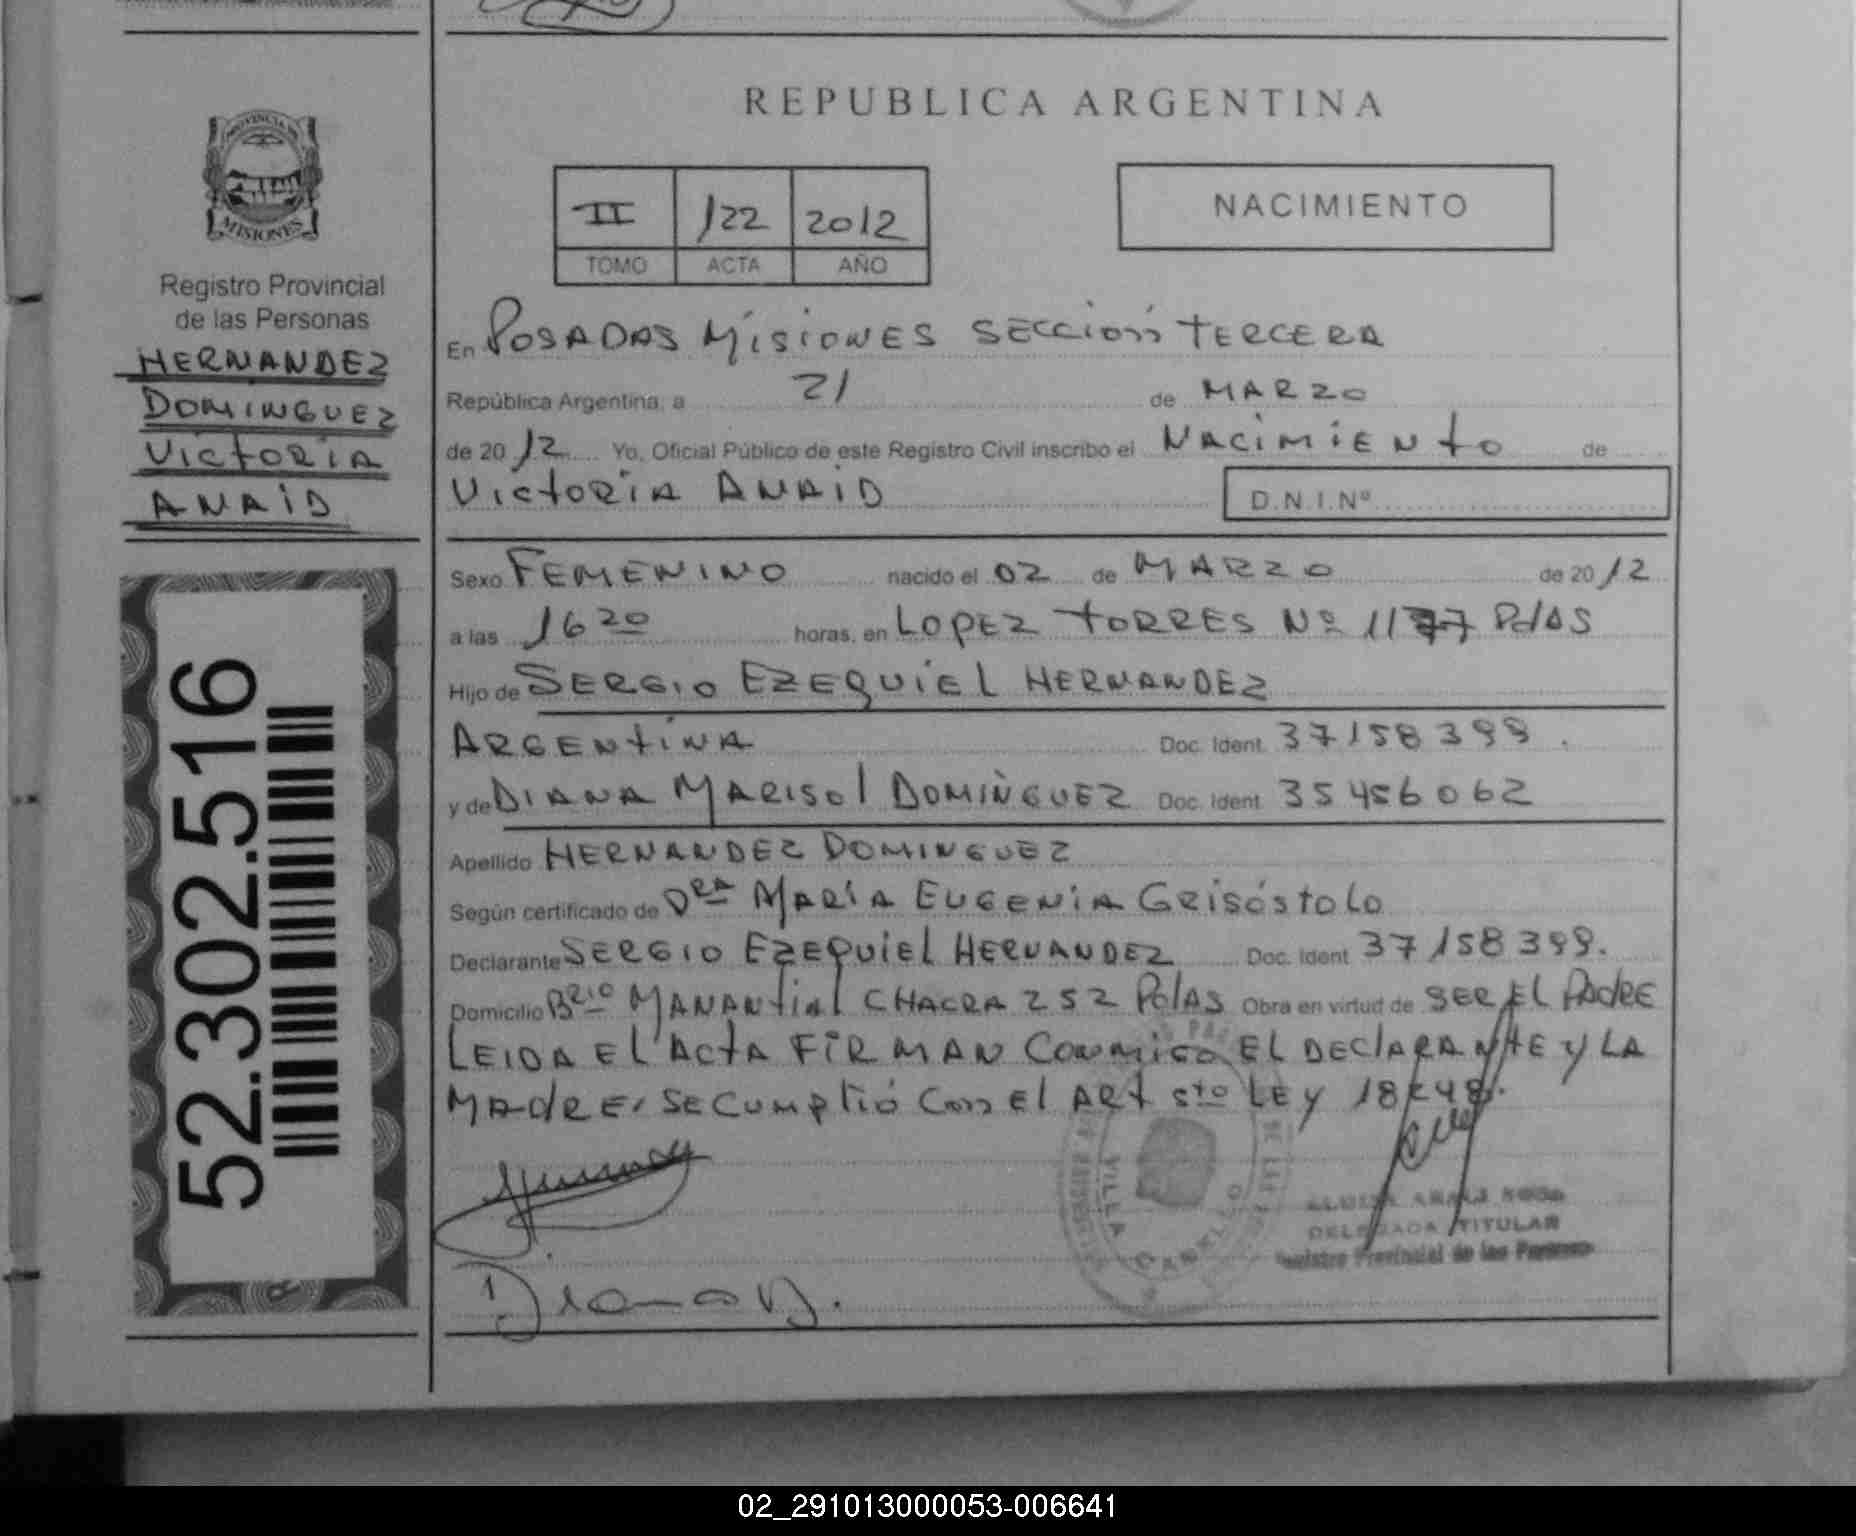 PROVINCIA DE
MISIONES
Registro Provincial
de las Personas
HERNANDEZ
DOMINGUEZ
VICTORIA
ANAID
52.302.516
REPUBLICA ARGENTINA
II 122 2012
TOMO ACTA AÑO
NACIMIENTO
En POSADAS MISIONES SECCION TERCERA
República Argentina, a 21 de MARZO
de 2012 Yo, Oficial Público de este Registro Civil inscribo el NACIMIENTO de
VICTORIA ANAID D.N.I.Nº
Sexo FEMENINO nacido el 02 de MARZO de 2012
a las 16 20 horas, en LOPEZ TORRES Nº 1177 PdAS
Hijo de SERGIO EZEQUIEL HERNANDEZ
ARGENTINA Doc. Ident. 37158399.
y de DIANA MARISOL DOMINGUEZ Doc. Ident. 35456062
Apellido HERNANDEZ DOMINGUEZ
Según certificado de DRA MARÍA EUGENIA GRISÓSTOLO
Declarante SERGIO EZEQUIEL HERNANDEZ Doc. Ident. 37158399.
Domicilio BRIO MANANTIAL CHACRA 252 PdAS Obra en virtud de SER EL PADRE
LEIDA EL ACTA FIRMAN CONMIGO EL DECLARANTE Y LA
MADRE, SE CUMPLIÓ CON EL ART 5to LEY 18248.
VILLA CABELLO
DELEGADA TITULAR
Registro Provincial de las Personas
Diana D.
02_291013000053-006641